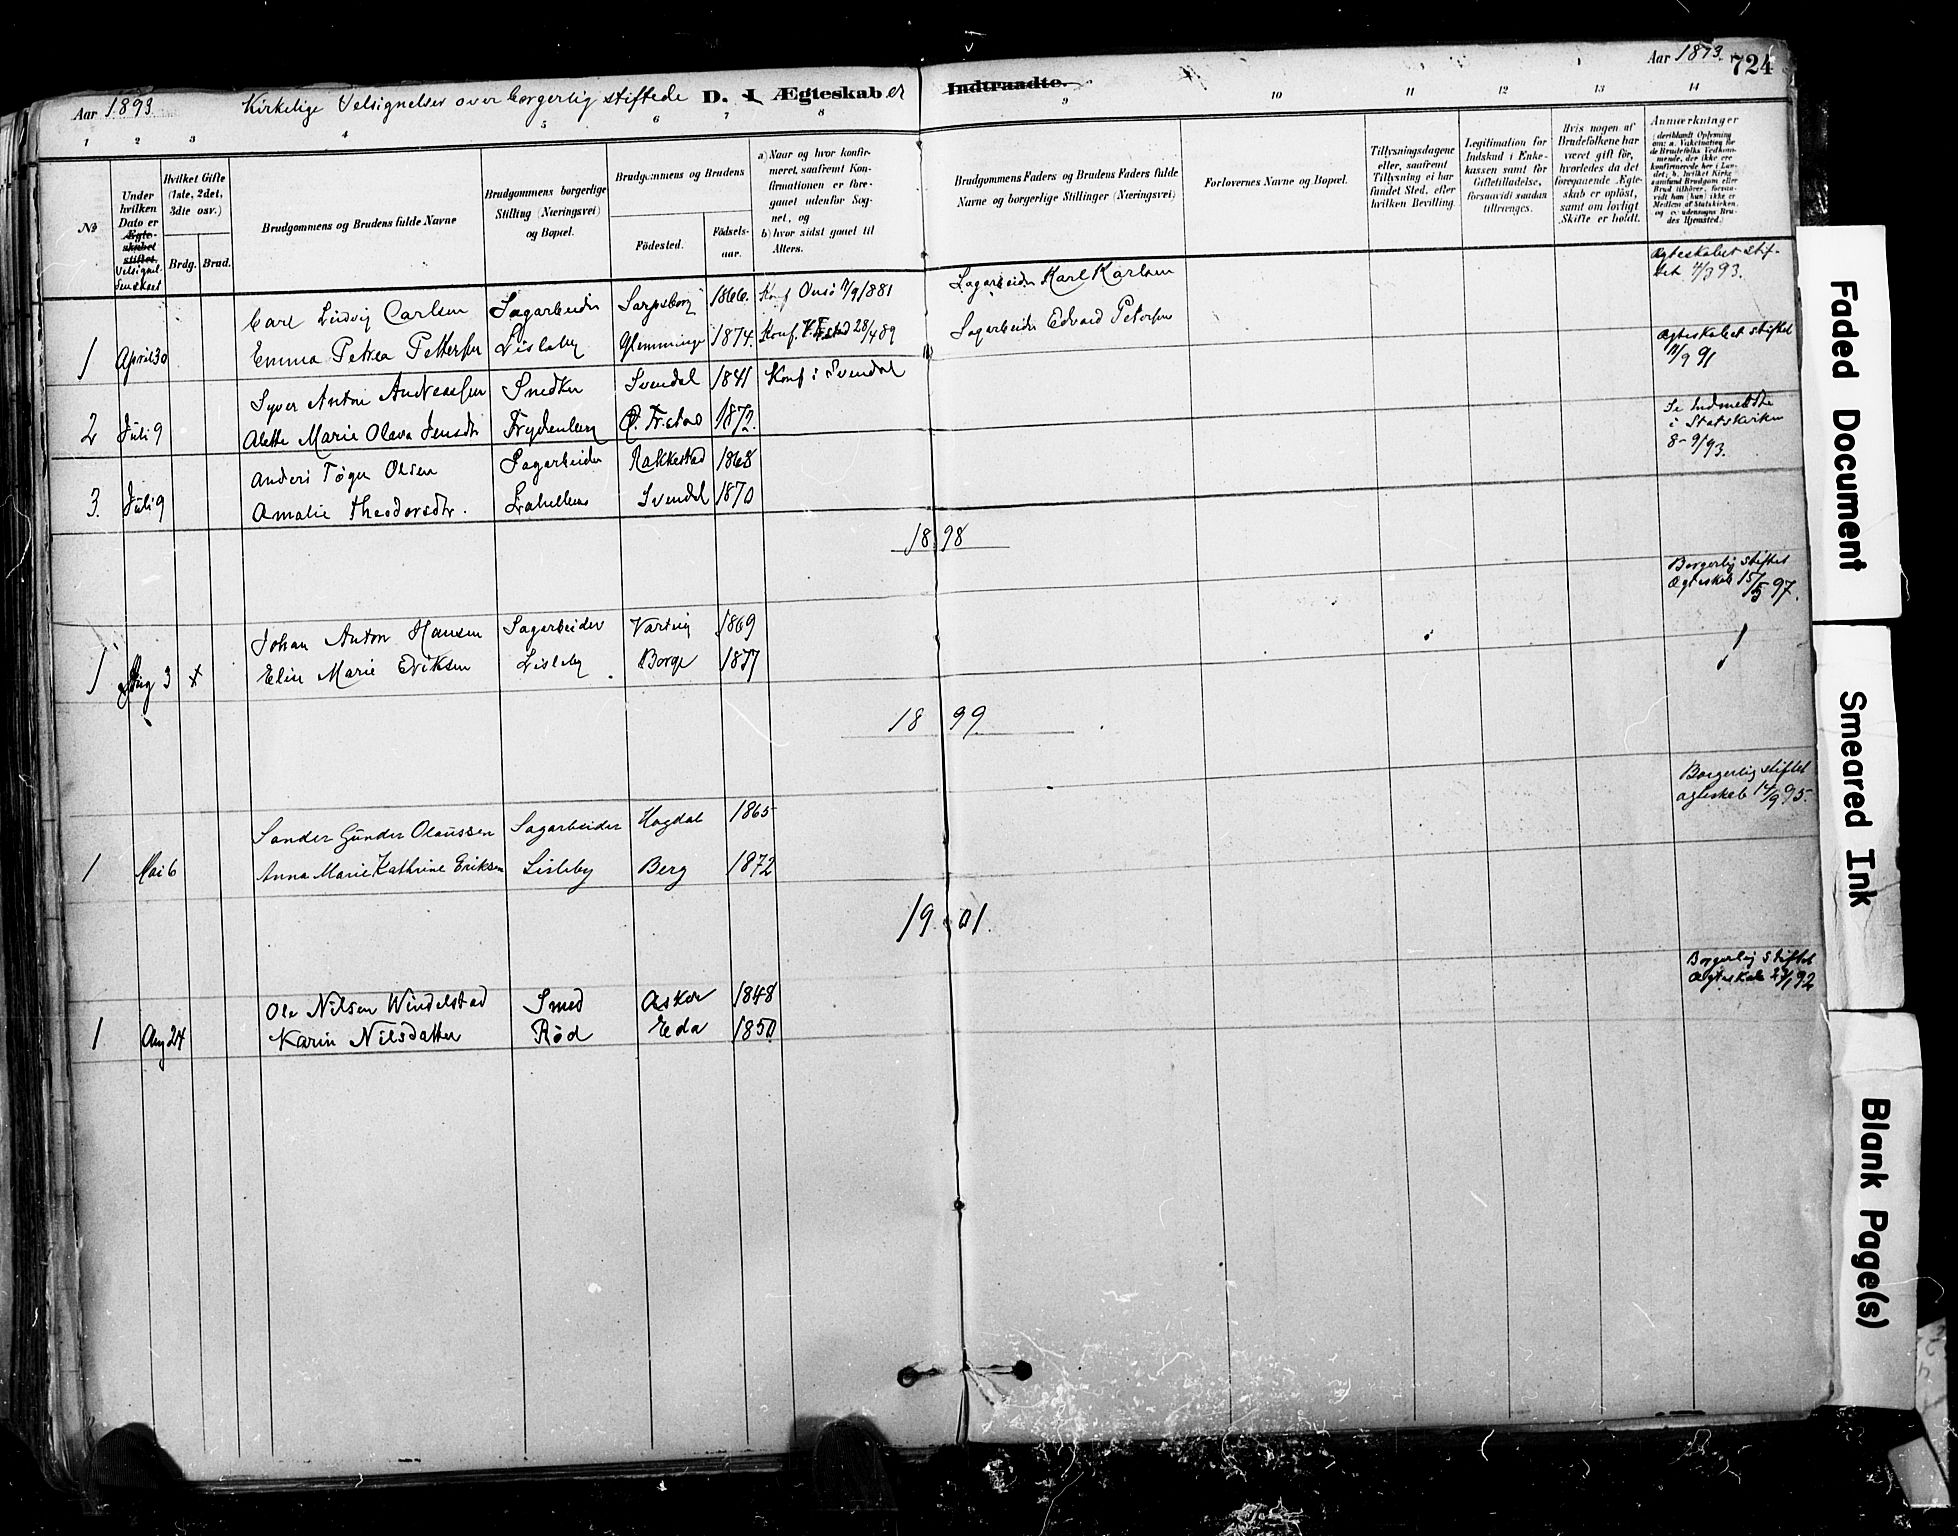 Aar 1893 Kirkelige Velsignelser over borgerlig stiftede D. I. Ægteskaber Indtraadte. Aar 1893. 724
1 2 3 4 5 6 7 8 9 10 11 12 13 14
No
Under hvilken Dato er Ægteskabet stiftet, Velsignet
Hvilket Gifte (1ste, 2det, 3die osv.)
Brdg. Brud.
Brudgommens og Brudens fulde Navne
Brudgommens borgerlige Stilling (Næringsvei) og Bopæl.
Brudgommens og Brudens
Födested. Födselsaar.
a) Naar og hvor konfirmeret, saafremt Konfirmationen er foregaaet udenfor Sognet, og
b) hvor sidst gaaet til Alters.
Brudgommens Faders og Brudens Faders fulde Navne og borgerlige Stillinger (Næringsvei)
Forlovernes Navne og Bopæl.
Tillysningsdagene eller, saafremt Tillysning ei har fundet Sted, efter hvilken Bevilling.
Legitimation for Indskud i Enkekassen samt for Giftetilladelse, forsaavidt saadan tiltrænges.
Hvis nogen af Brudefolkene har været gift för, hvorledes da det foregaaende Ægteskab er oplöst, samt om lovligt Skifte er holdt.
Anmærkninger
Carl Ludvig Carlsen Sagarbeider Sarpsborg 1866. Konf Onsö 1881 Sagarbeider Karl Karlsen Ægteskabet stiftet 93.
1 April 30 Emma Petrea Pettersen Lisleby Glemminge 1874. Konf. 28/4 89 Sagarbeider Edvard Petersen
Syver Anton Andreassen Snedker Svendal 1841 Konf i Svendal Ægteskabet stiftet 11/9 91
2 Juli 9 Alette Marie Olava Jensdtr Trydenberg Fr.stad 1872.
Anders Olsen Sagarbeider Rakkestad 1868 Se Indmeldte i Statskirken 8-9/93.
3. Juli 9 Amalie Theodorsdtr. Svendal 1870
1898
Johan Anton Hansen Sagarbeider Varteig 1869 Borgerlig stiftet Ægteskab 15/5 97.
1 3 x Elin Marie Eriksen Lisleby Borge 1877
1899.
Sander Gunder Olaussen Sagarbeider Hogdal 1865 Borgerlig stiftet Ægteskab 95.
1 Mai 6 Anna Marie Kathrine Eriksen Lisleby Berg 1872
1901.
Ole Nilsen Windelstad Smed Asker 1848 Borgerlig stiftet Ægteskab 92
1 Aug 24 Karin Nilsdatter Röd Eda 1850
Faded Document
Smeared Ink
Blank Page(s)